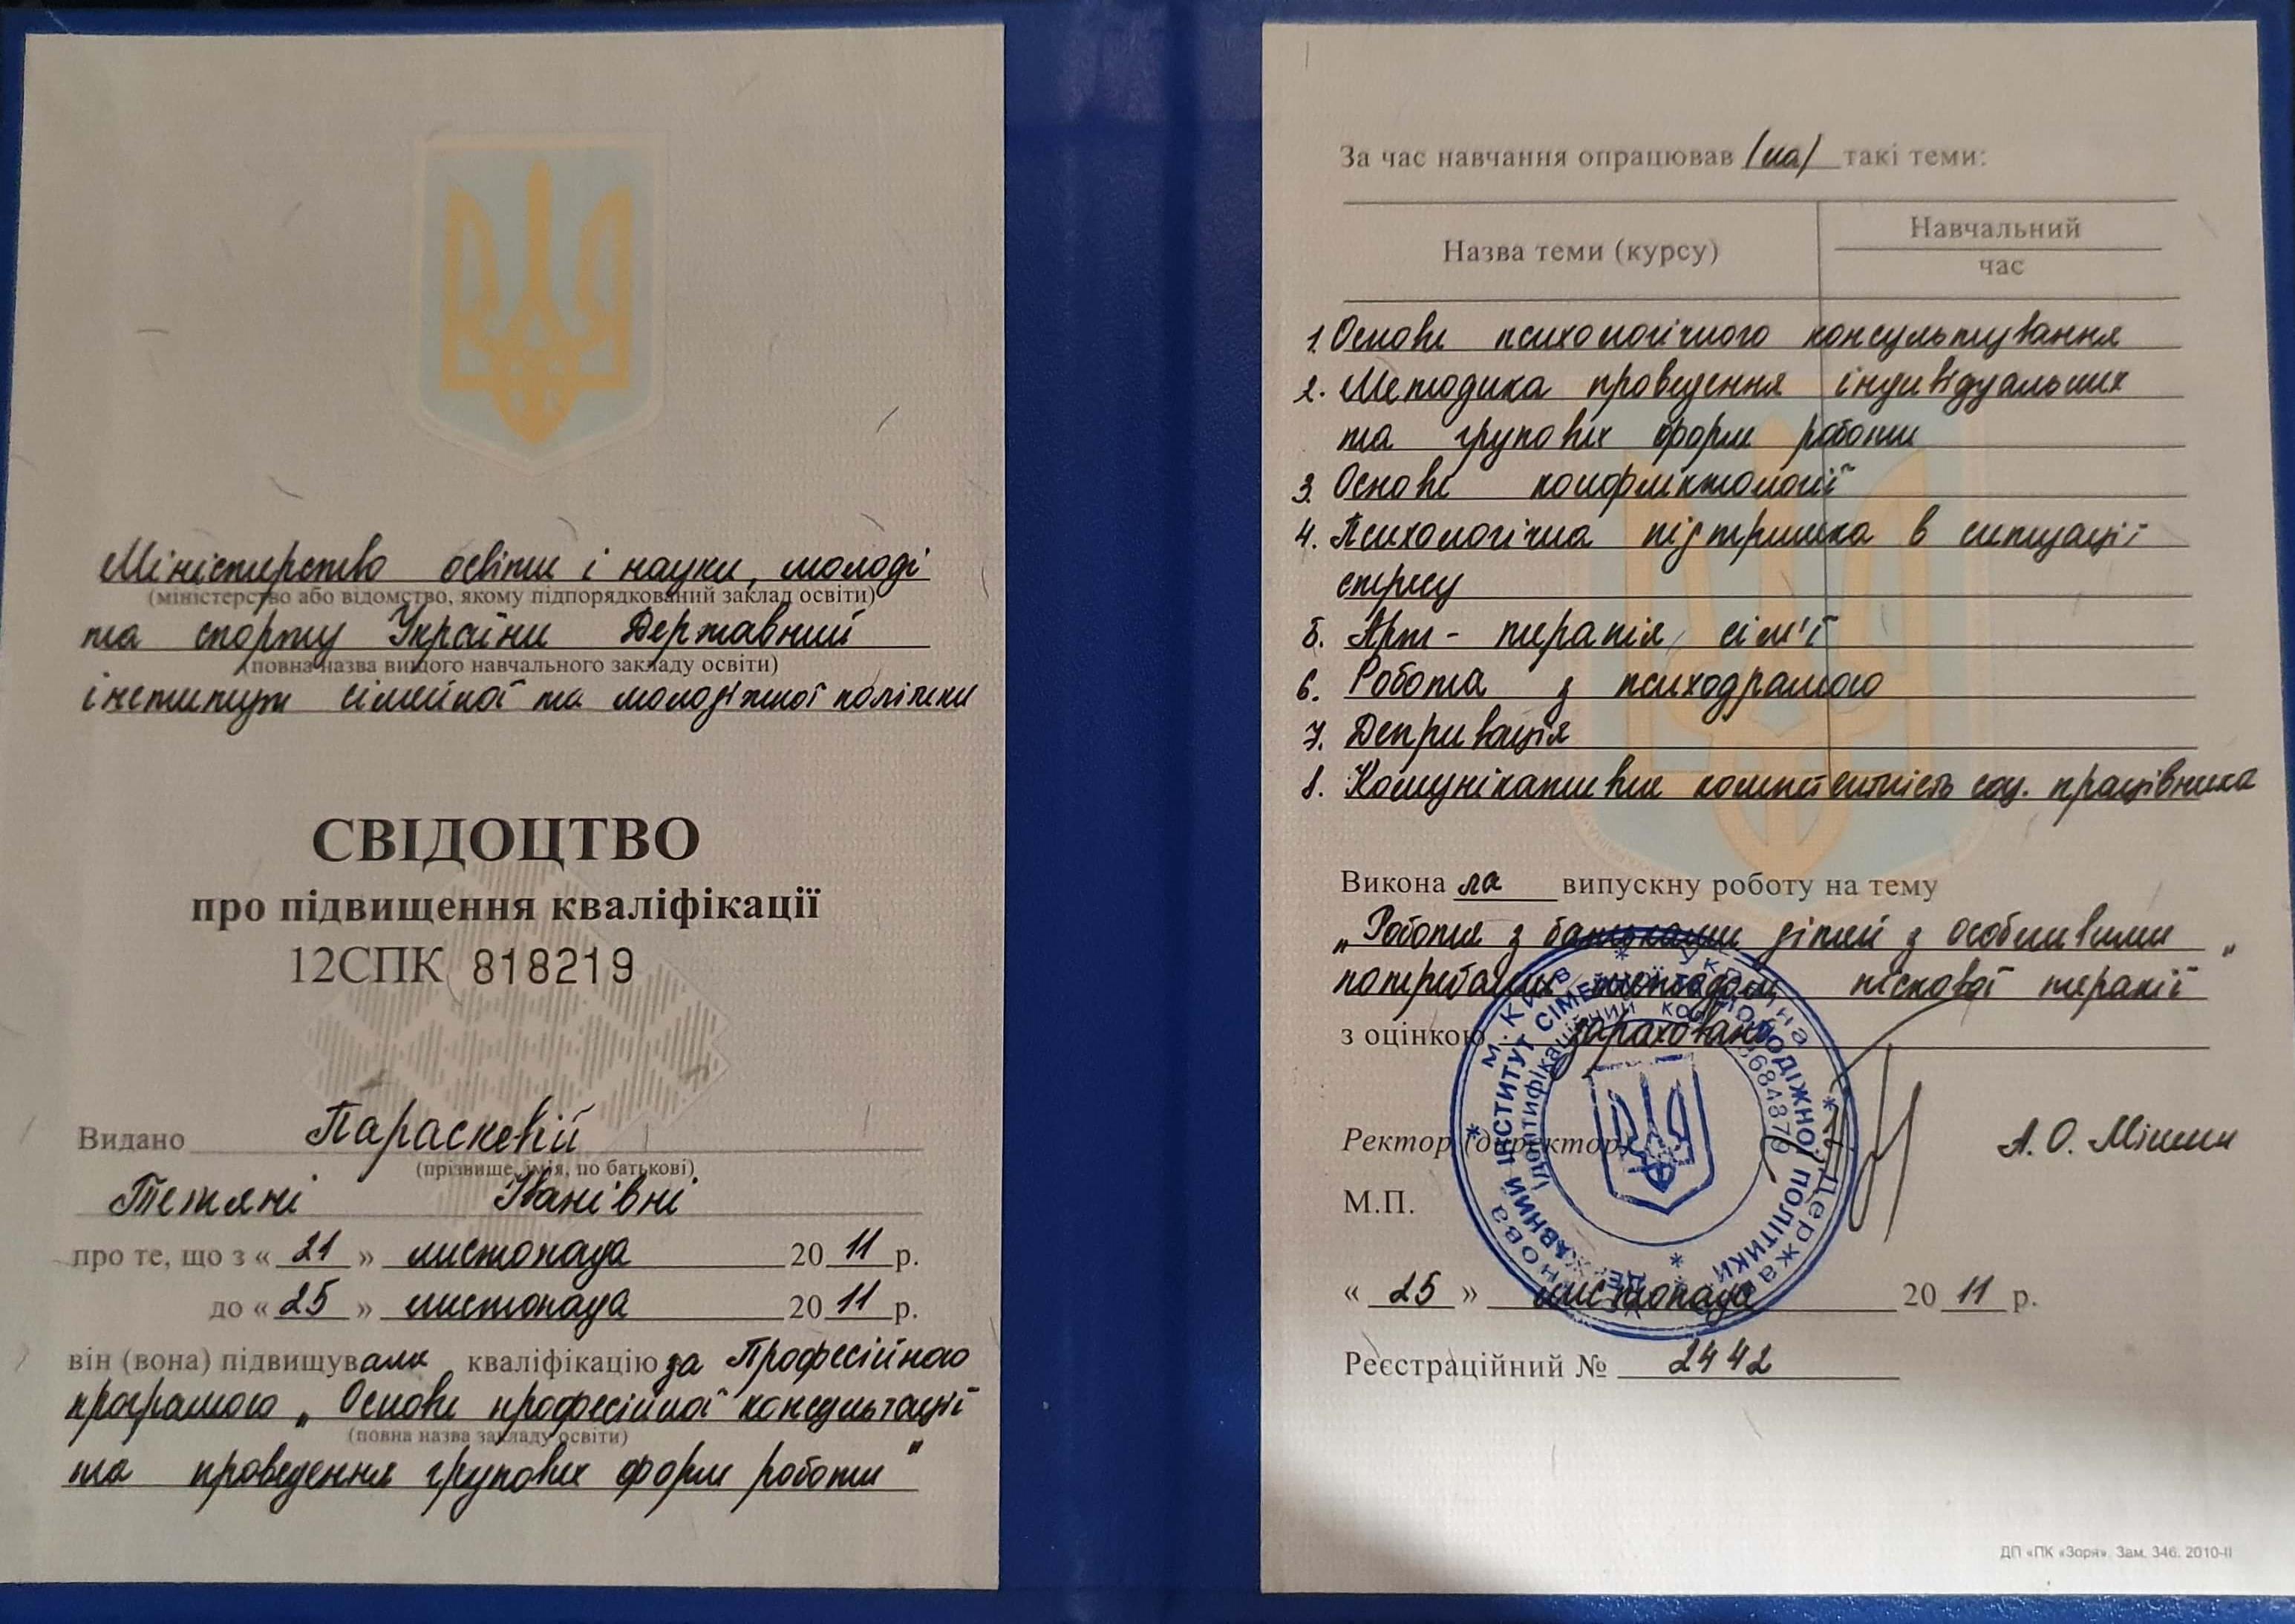 Міністерство освіти і науки, молоді
(міністерство або відомство, якому підпорядкований заклад освіти)
та спорту України Державний
(повна назва вищого навчального закладу освіти)
інститут сімейної та молодіжної політики
СВІДОЦТВО
про підвищення кваліфікації
12СПК 818219
Видано Параскевій
(прізвище, імя, по батькові)
Тетяні Іванівні
про те, що з « 21 » листопада 20 11 р.
до « 25 » листопада 20 11 р.
він (вона) підвищувала кваліфікацію за Професійною
програмою „Основи професійної консультації
(повна назва закладу освіти)
та проведення групових форм роботи"
За час навчання опрацював /ла/ такі теми:
Назва теми (курсу)
Навчальний
час
1. Основи психологічного консультування
2. Методика проведення індивідуальних
та групових форм роботи
3. Основи конфліктології
4. Психологічна підтримка в ситуації
стресу
5. Арт - терапія сім'ї
6. Робота з психодрамою
7. Депривація
8. Комунікативна компетентність соц. працівника
Викона ла випускну роботу на тему
„Робота з батьками дітей з особливими
потребами методом піскової терапії"
з оцінкою зараховано
Ректор (директор)
М.П.
« 25 » листопада 20 11 р.
Реєстраційний № 2442
м. Київ * Україна * Державна
ДЕРЖАВНИЙ ІНСТИТУТ СІМЕЙНОЇ ТА МОЛОДІЖНОЇ ПОЛІТИКИ
Ідентифікаційний код
ДП «ПК «Зоря». Зам. 346. 2010-ІІ